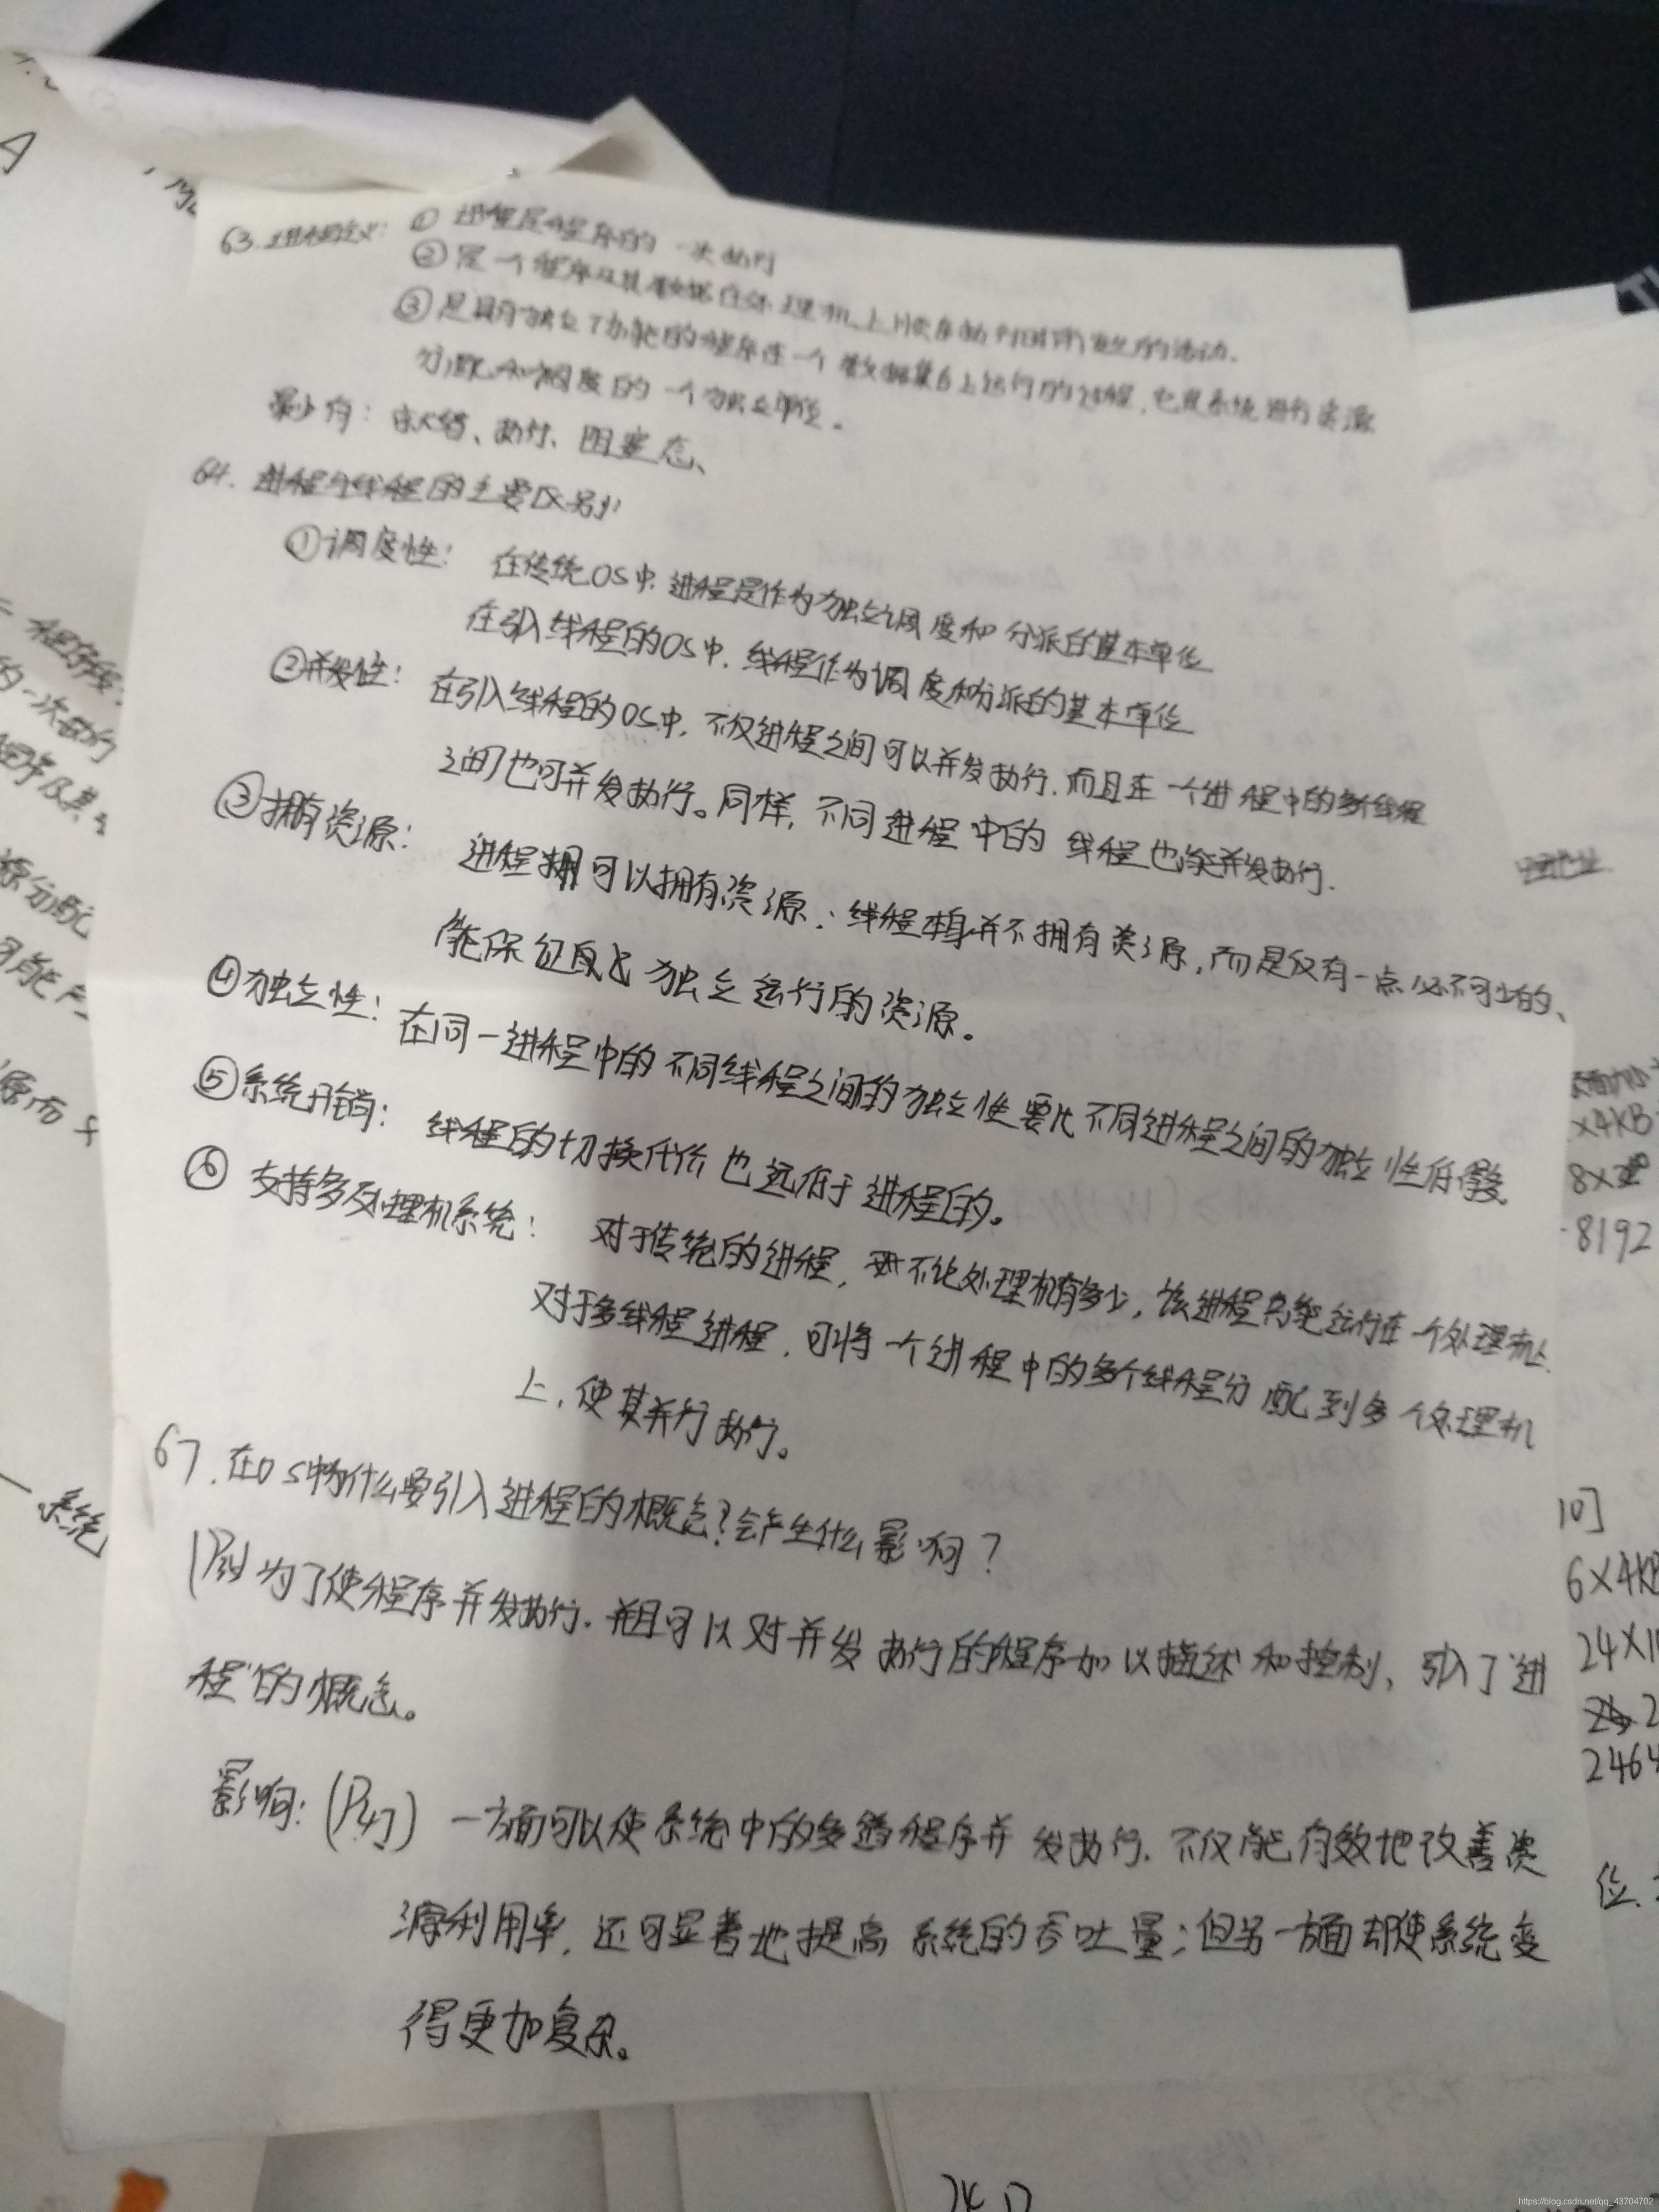 63. 进程的定义: ① 进程是程序的一次执行
② 是一个程序及其数据在处理机上顺序执行时所发生的活动.
③ 是具有独立功能的程序在一个数据集合上运行的过程, 它是系统进行资源
分配和调度的一个独立单位。
最少有: 就绪、执行、阻塞态、
64. 进程与线程的主要区别
①调度性: 在传统OS中. 进程是作为独立调度和分派的基本单位
在引入线程的OS中. 线程作为调度和分派的基本单位
②并发性: 在引入线程的OS中, 不仅进程之间可以并发执行. 而且在一个进程中的多个线程
之间也可并发执行。同样, 不同进程中的线程也能并发执行.
③拥有资源: 进程可以拥有资源; 线程本身并不拥有资源, 而是仅有一点必不可少的、
能保证自己独立运行的资源。
④独立性: 在同一进程中的不同线程之间的独立性要比不同进程之间的独立性低得多。
⑤系统开销: 线程的切换代价也远低于进程的。
⑥ 支持多处理机系统: 对于传统的进程, 不论处理机有多少, 该进程只能运行在一个处理机上.
对于多线程进程, 可将一个进程中的多个线程分配到多个处理机
上, 使其并行执行。
67. 在OS中为什么要引入进程的概念? 会产生什么影响?
为了使程序并发执行. 并且可以对并发执行的程序加以描述和控制, 引入了进
程的概念。
影响: (P47) 一方面可以使系统中的多道程序并发执行. 不仅能有效地改善资
源利用率, 还可显著地提高系统的吞吐量; 但另一方面却使系统变
得更加复杂。
的一次执行
系统
×4KB
8192
10]
6×4KB
2464
https://blog.csdn.net/qq_43704702